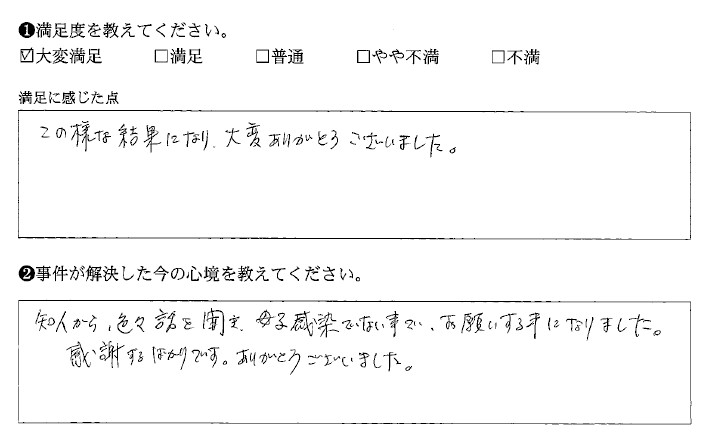 ❶満足度を教えてください。
☑大変満足 □満足 □普通 □やや不満 □不満
満足に感じた点
この様な結果になり、大変ありがとうございました。
❷事件が解決した今の心境を教えてください。
知人から、色々話を聞き、母子感染でない事で、お願いする事になりました。
感謝するばかりです。ありがとうございました。